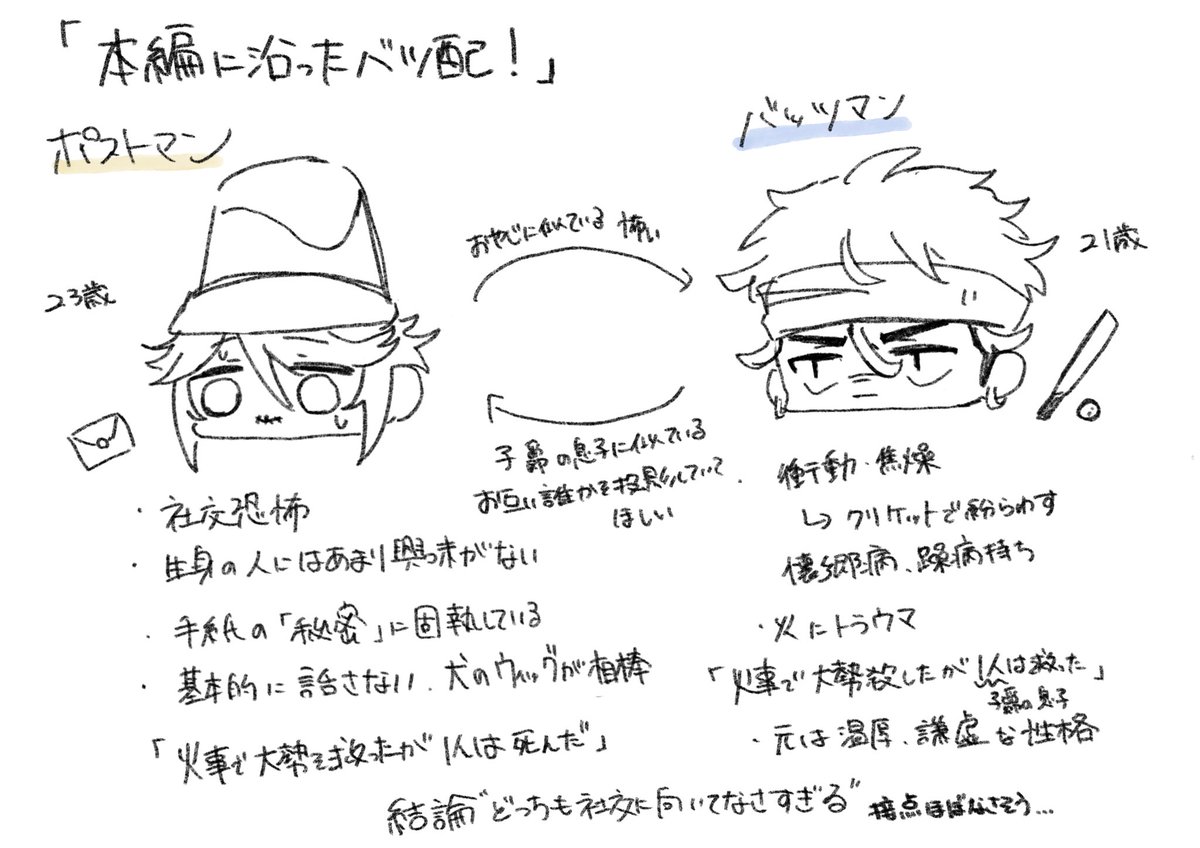 「本編に沿ったバツ配!」
ポストマン
バッツマン
23歳
21歳
おやじに似ている 怖い
子爵の息子に似ている
お互い誰かを投影していて
ほしい
・社交恐怖
・生身の人にはあまり興味がない
・手紙の「秘密」に固執している
・基本的に話さない、犬のウィックが相棒
「火事で大勢を救ったが1人は死んだ」
・衝動・焦燥
↳ クリケットで紛らわす
懐郷病、躁病持ち
・火にトラウマ
「火事で大勢殺したが1人は救った」
子爵の息子
・元は温厚、謙虚な性格
結論"どっちも社交に向いてなさすぎる" 接点ほぼなさそう…